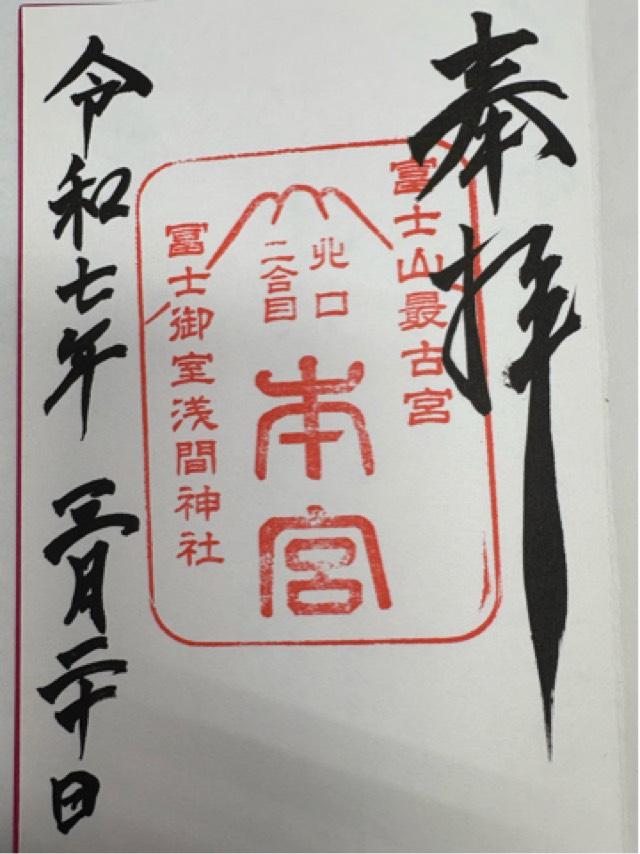 奉拝
冨士山最古宮
北口
二合目
本宮
冨士御室浅間神社
令和七年 三月二十日